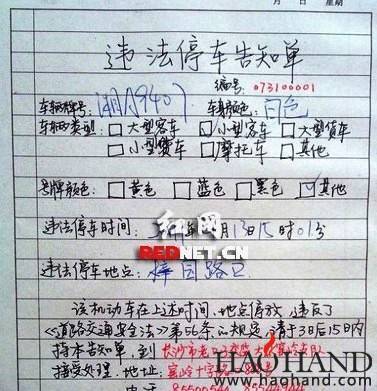 日 星期
违法停车告知单
编号: 073100001
车辆牌号: 车身颜色: 白色
车辆类型: □大型客车 □小型客车 □大型货车
□小型货车 □摩托车 □其他
号牌颜色: □黄色 □蓝色 □黑色 □其他
违法停车时间: 月13日15时01分
红网
REDNET.CN
违法停车地点: 梓园路口
该机动车在上述时间、地点停放,违反了
《道路交通安全法》第56条的规定,请于3日后15日内
持本告知单,到长沙市
接受处理。地址:
电话
HAOHAND
WWW.HAOHAND.COM